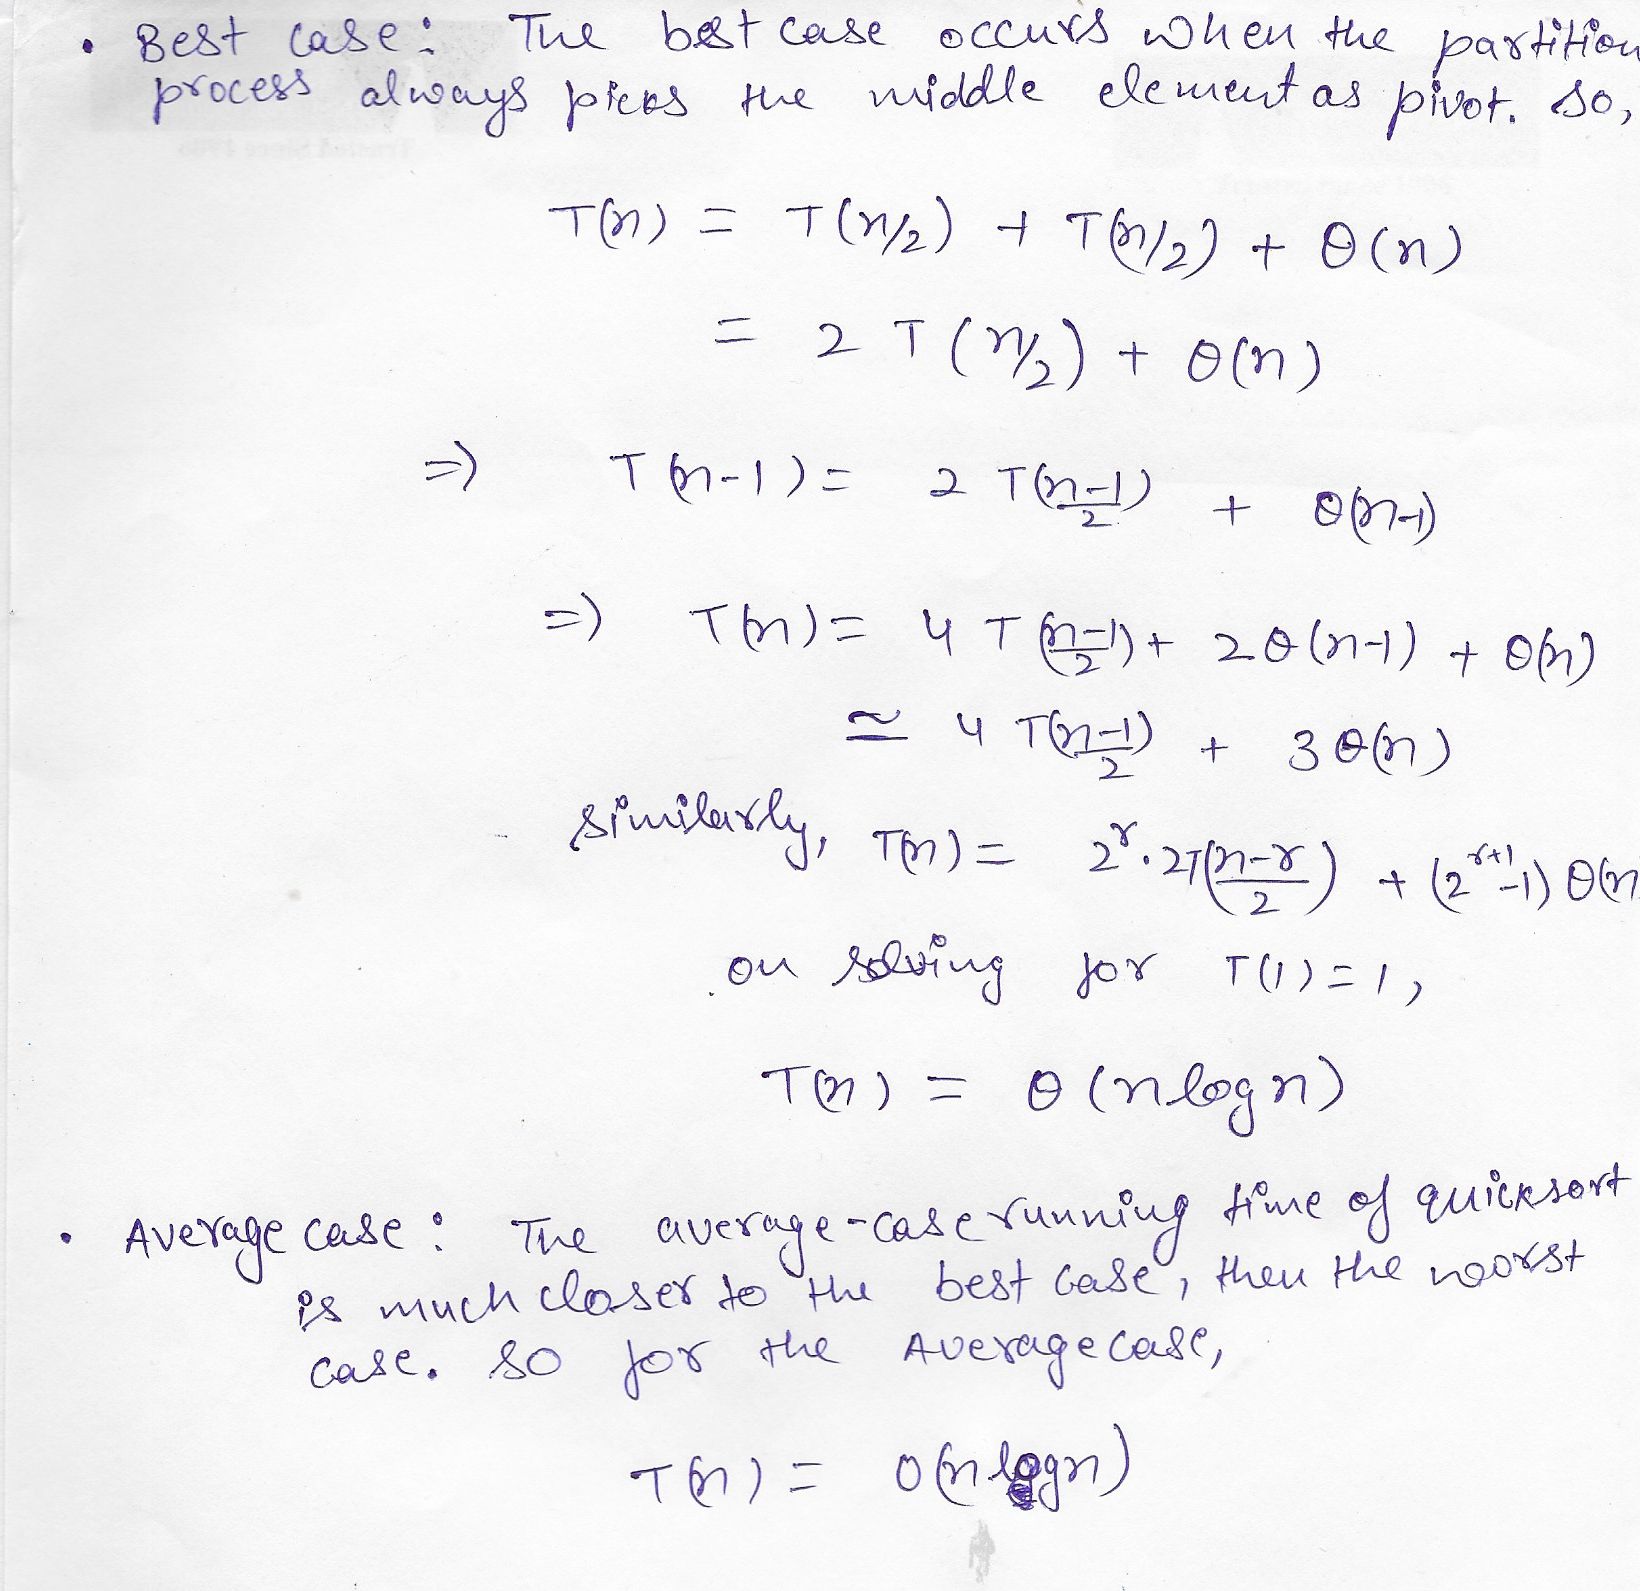 • Best Case: The best case occurs when the partition
process always picks the middle element as pivot. So,
T(n) = T(n/2) + T(n/2) + θ(n)
= 2 T(n/2) + θ(n)
=> T(n-1) = 2 T((n-1)/2) + θ(n-1)
=> T(n) = 4 T((n-1)/2) + 2θ(n-1) + θ(n)
≃ 4 T((n-1)/2) + 3θ(n)
Similarly, T(n) = 2^r · 2T((n-r)/2) + (2^(r+1) -1) θ(n
on solving for T(1) = 1,
T(n) = θ(n log n)
• Average case: The average-case running time of quicksort
is much closer to the best case, then the worst
case. So for the Average case,
T(n) = O(n log n)